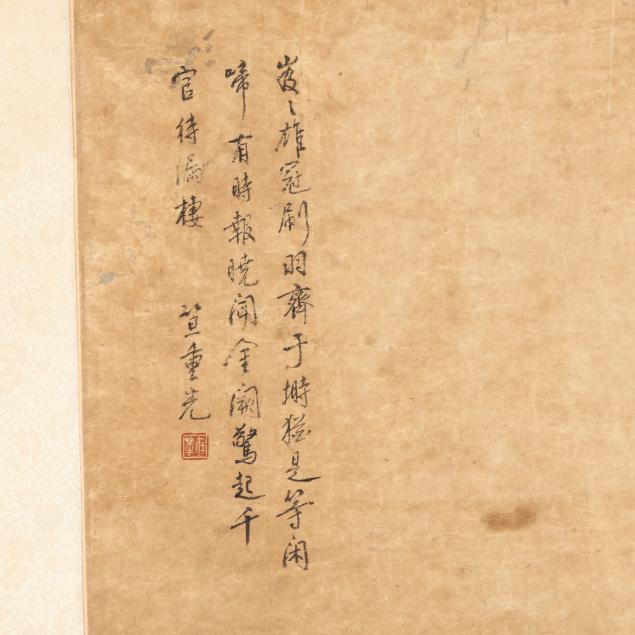 峩〻雄冠刷羽齊于塒猶是等閑
啼有時報曉聞金闕驚起千
官待漏棲
笪重光